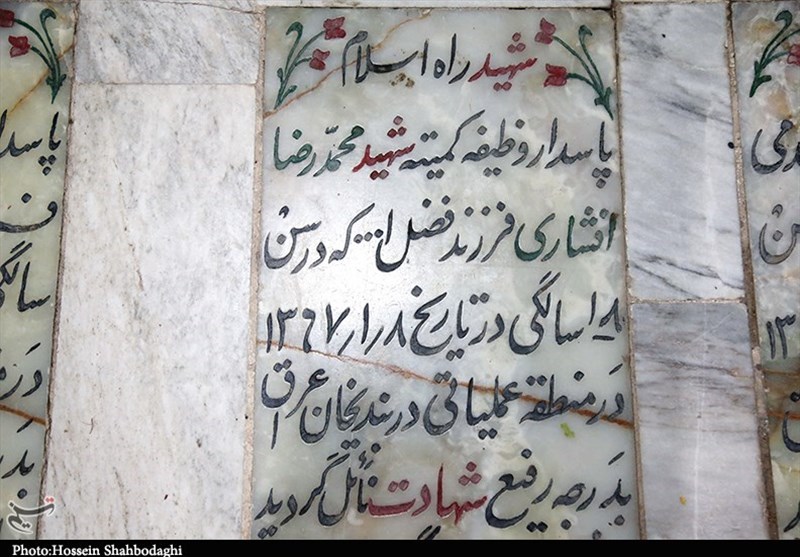 شهید راه اسلام
پاسدار وظیفه کمیته شهید محمّدرضا
افشاری فرزند فضل ا... که در سن
۱۸ سالگی در تاریخ ۱۳۶۷٫۱٫۸
در منطقه عملیاتی دربندیخان عراق
بدرجه رفیع شهادت نائل گردید
پاسدا
سالگی
دره
بدر
دمی
۱۳
تسنیم
Photo:Hossein Shahbodaghi